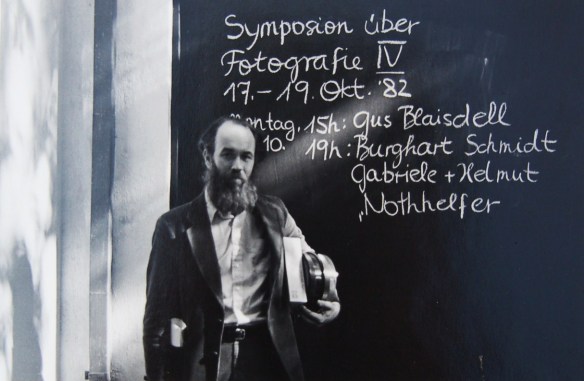 Symposion über
Fotografie IV
17.–19. Okt. '82
15h: Gus Blaisdell
10. 19h: Burghart Schmidt
Gabriele + Helmut
„Nothhelfer